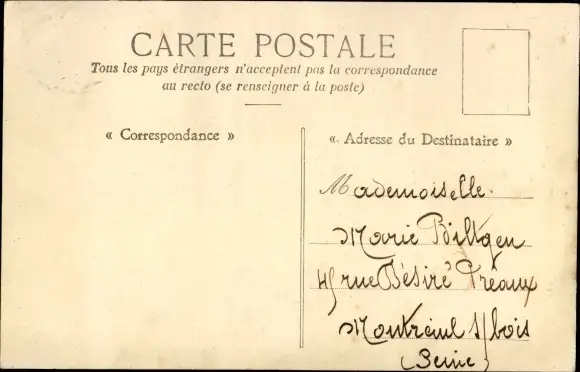 CARTE POSTALE
Tous les pays étrangers n'acceptent pas la correspondance
au recto (se renseigner à la poste)
« Correspondance »
« Adresse du Destinataire »
Mademoiselle.
Marie Biltgen
rue Désiré Préaux
Montreuil s/bois
(Seine)